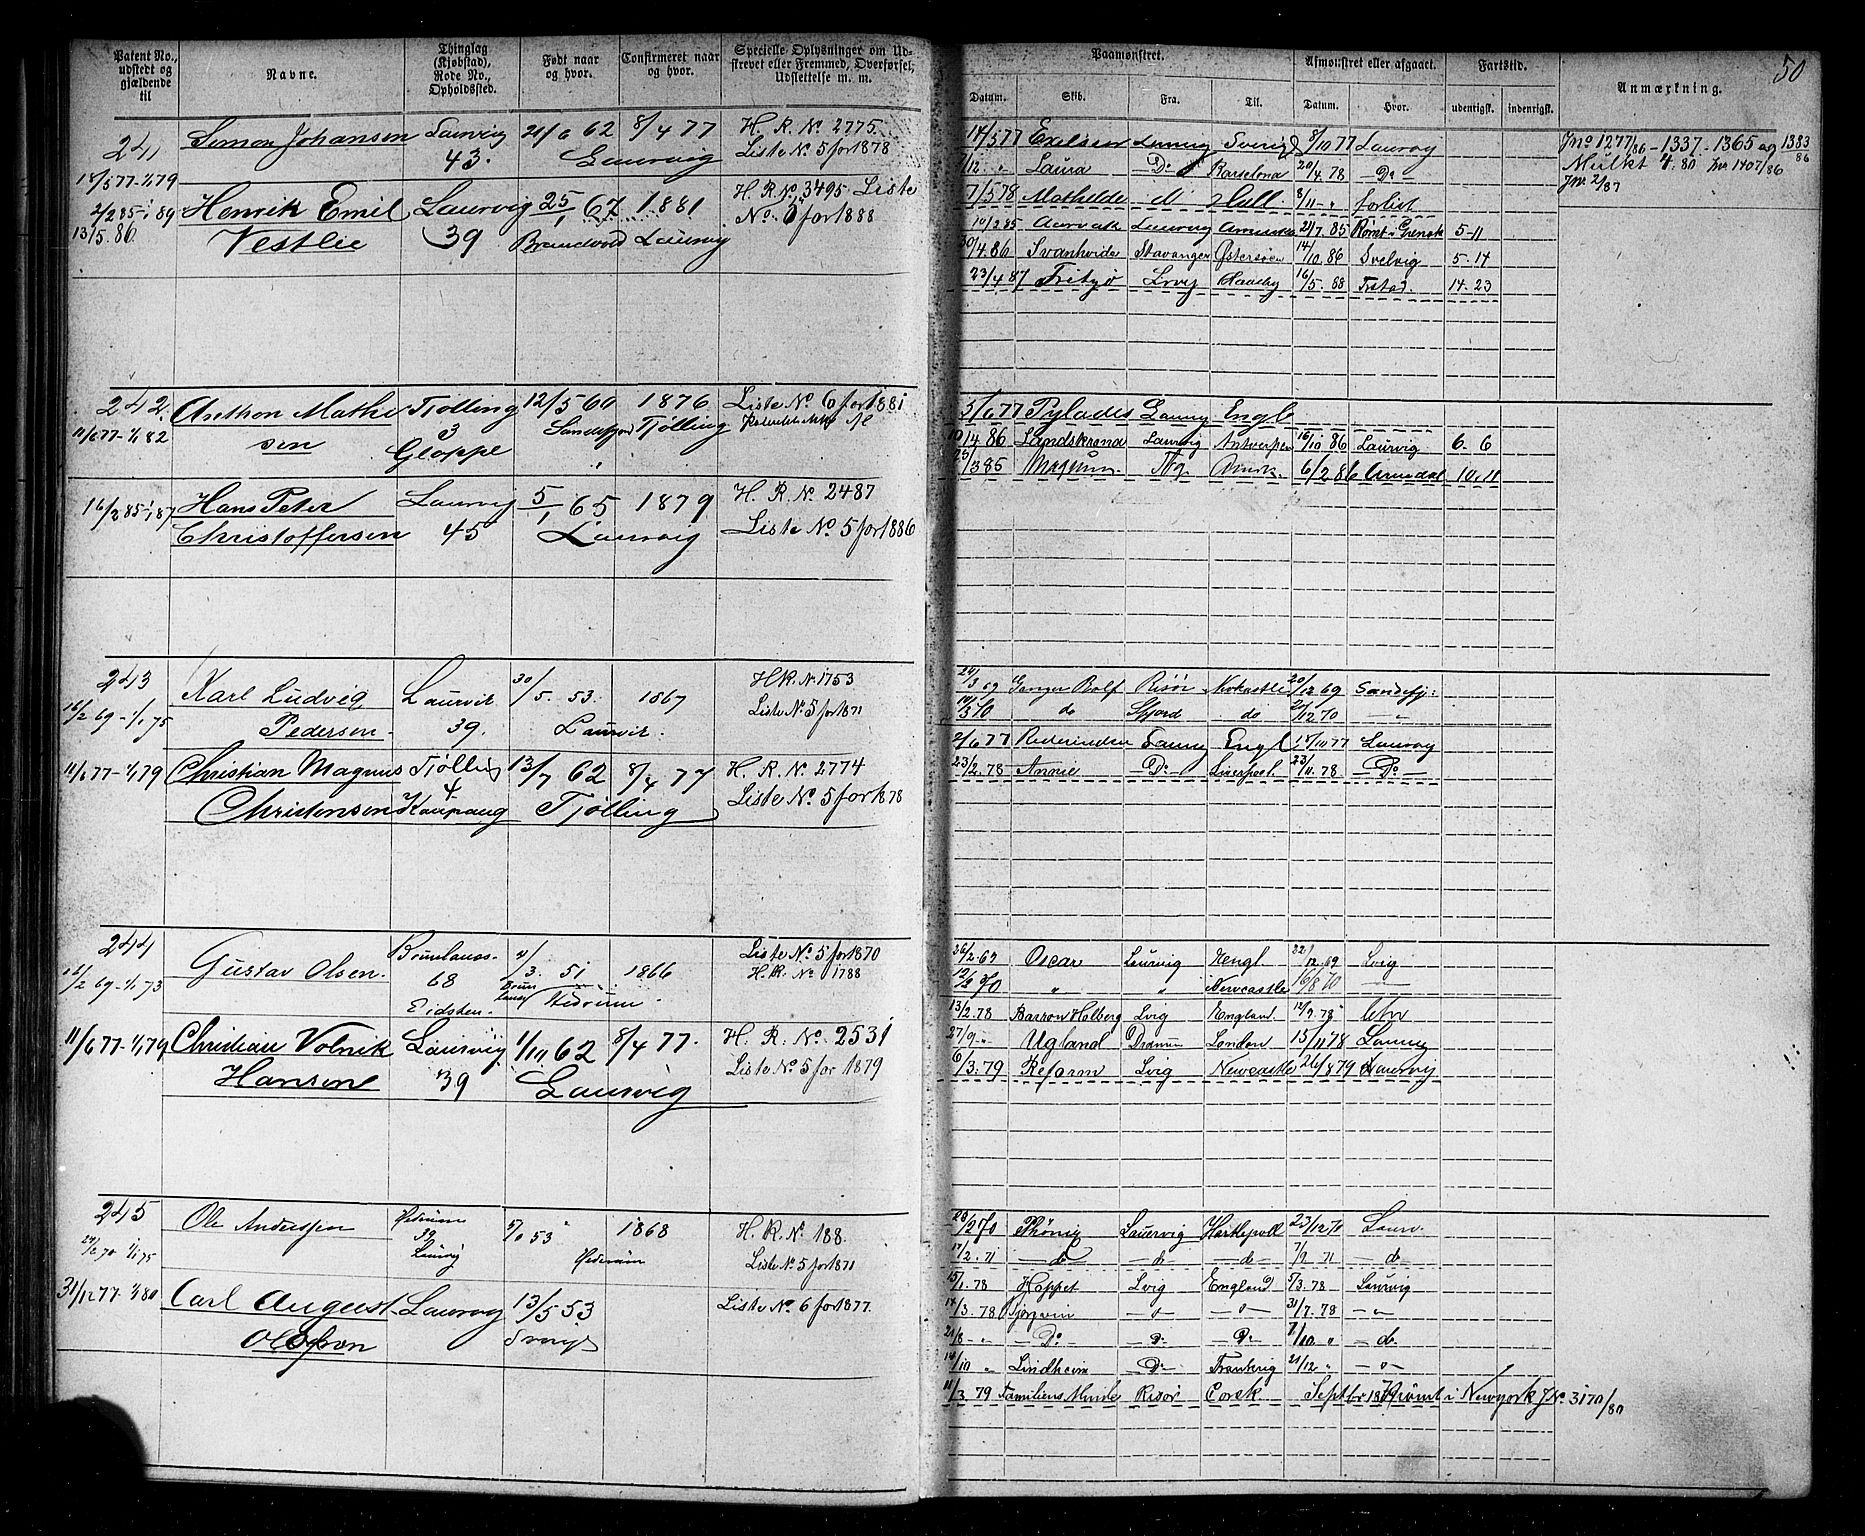 Patent No., udstedt og gjældende til
Navne.
Thinglag (Kjøbstad), Rode No., Opholdssted.
Født naar og hvor.
Confirmeret naar og hvor.
Specielle Oplysninger om Udskrevet eller Fremmed, Overførsel, Udslettelse m. m.
241 Simon Johansen Laurvig 21/6 62 8/4 77 H. R. No 2775.
18/5 77-1/1 79 43. Laurvig Liste No 5 for 1878
2/2 85 - 89 Henrik Emil Laurvig 25/1 67 1881 H. R No 3495 Liste
13/5. 86 Vestlie 39 Laurvig No. 5 for 1888
242. Anthon Mathi Tjølling 12/5 60 1876 Liste No 6 for 1881
11/6 77-1/1 82 sen 3 Sandefjord Tjølling
Gloppe
16/2 85-1/1 87 Hans Peter Laurvig 5/1 65 1879 H. R. No 2487
Christoffersen 45 Laurvig Liste No 5 for 1886
243 Karl Ludvig Laurvik 30/5. 53. 1867 H.R. No 1753
16/2 69-1/1 75 Pedersen 39. Laurvik. Liste No 5 for 1871
11/6 77-1/1 79 Christian Magnus Tjølling 13/7 62 8/4 77 H. R. No 2774
Christensen 4. Kaupang Tjølling Liste No 5 for 1878
244 Gustav Olsen Brunlanes 3. 51 1866 Liste No 5 for 1870
16/2 69-1/1 73 68 Hedrum H. R. No 1788
Eidsten.
11/6 77-1/1 79 Christian Volrik Laurvig 1/10 62 8/4 77. H. R. No. 2531
Hansen 39 Laurvig Liste No 5 for 1879
245 Ole Anderssen Hedrum 53 1868 H. R. No 188.
39 Laurvig Hedrum Liste No 5 for 1871
31/12 77-1/1 80 Carl August Laurvig 13/5 53 Liste No. 6 for 1877.
Olofson Sverige
50
Paamønstret.
Afmønstret eller afgaaet.
Fartstid.
Anmærkning.
Datum. Skib. Fra. Til. Datum. Hvor. udenrigsk. indenrigsk.
14/5 77 Exelsior Laurvig Sverig 8/10 77 Laurvig Jno 1277/86 - 1337. 1365 og 1383/86
7/12. " Laura Do Barselona 20/4. 78 Do Mulkt 4. 80 Jno 1407/86
7/5 78 Mathilde Do Hull 8/11 - " forlist Jno 2/87
Laurvig 21/7 85 5-11
30/4. 86 Svanhvide Stavanger Østersøen 14/10. 86 Svelvig 5. 14
23/4 87 Fritzø Lrvig 16/5. 88 Frstad. 14. 23
5/6 77 Pylades Laurvig Engl
10/4 86 Landskrona Laurvig Antwerpen 16/10 86 Laurvig 6. 6
25/3 85 Magnum 6/2 86 Arendal 10. 11
24/3 69 Ganger Rolf Risør Nirkastle 20/12 69 Sandefj:
14/3 70 do Sfjord do 21/12 70 "
2/6 77 Laurvig Engl 17/10 77 Laurvig
23/2. 78 Annie Do Liverpool. 23/11. 78 Do
26/2. 69 Oscar Laurvig Hengl 22/12. 69 Lvig
12/2 70 " " Newcastle 16/8 70 "
13/2. 78 Barron Holberg Lvig England. 12/9. 78
27/9. " Ugland Dramm London 15/11 78 Laurvig
6/3. 79 Reform Lvig Newcastle 26/8 79 Laurvig
28/2 70 Phønix Laurvig Hartlepoll 23/12 70 Laurv.
17/2. 71 do do do 7/9 71 do
15/1. 78 Hoppet Lvig England 5/3. 78 Laurvig
14/3. 78 " " 31/7. 78 "
21/8 - " Do Do Do 7/10 " do
14/10 " Lindheim Do Frankrig 21/12 " "
11/3. 79 Familiens Minde Risør Corck Septbr 1879 Rømt i Newyork JNo. 3170/80